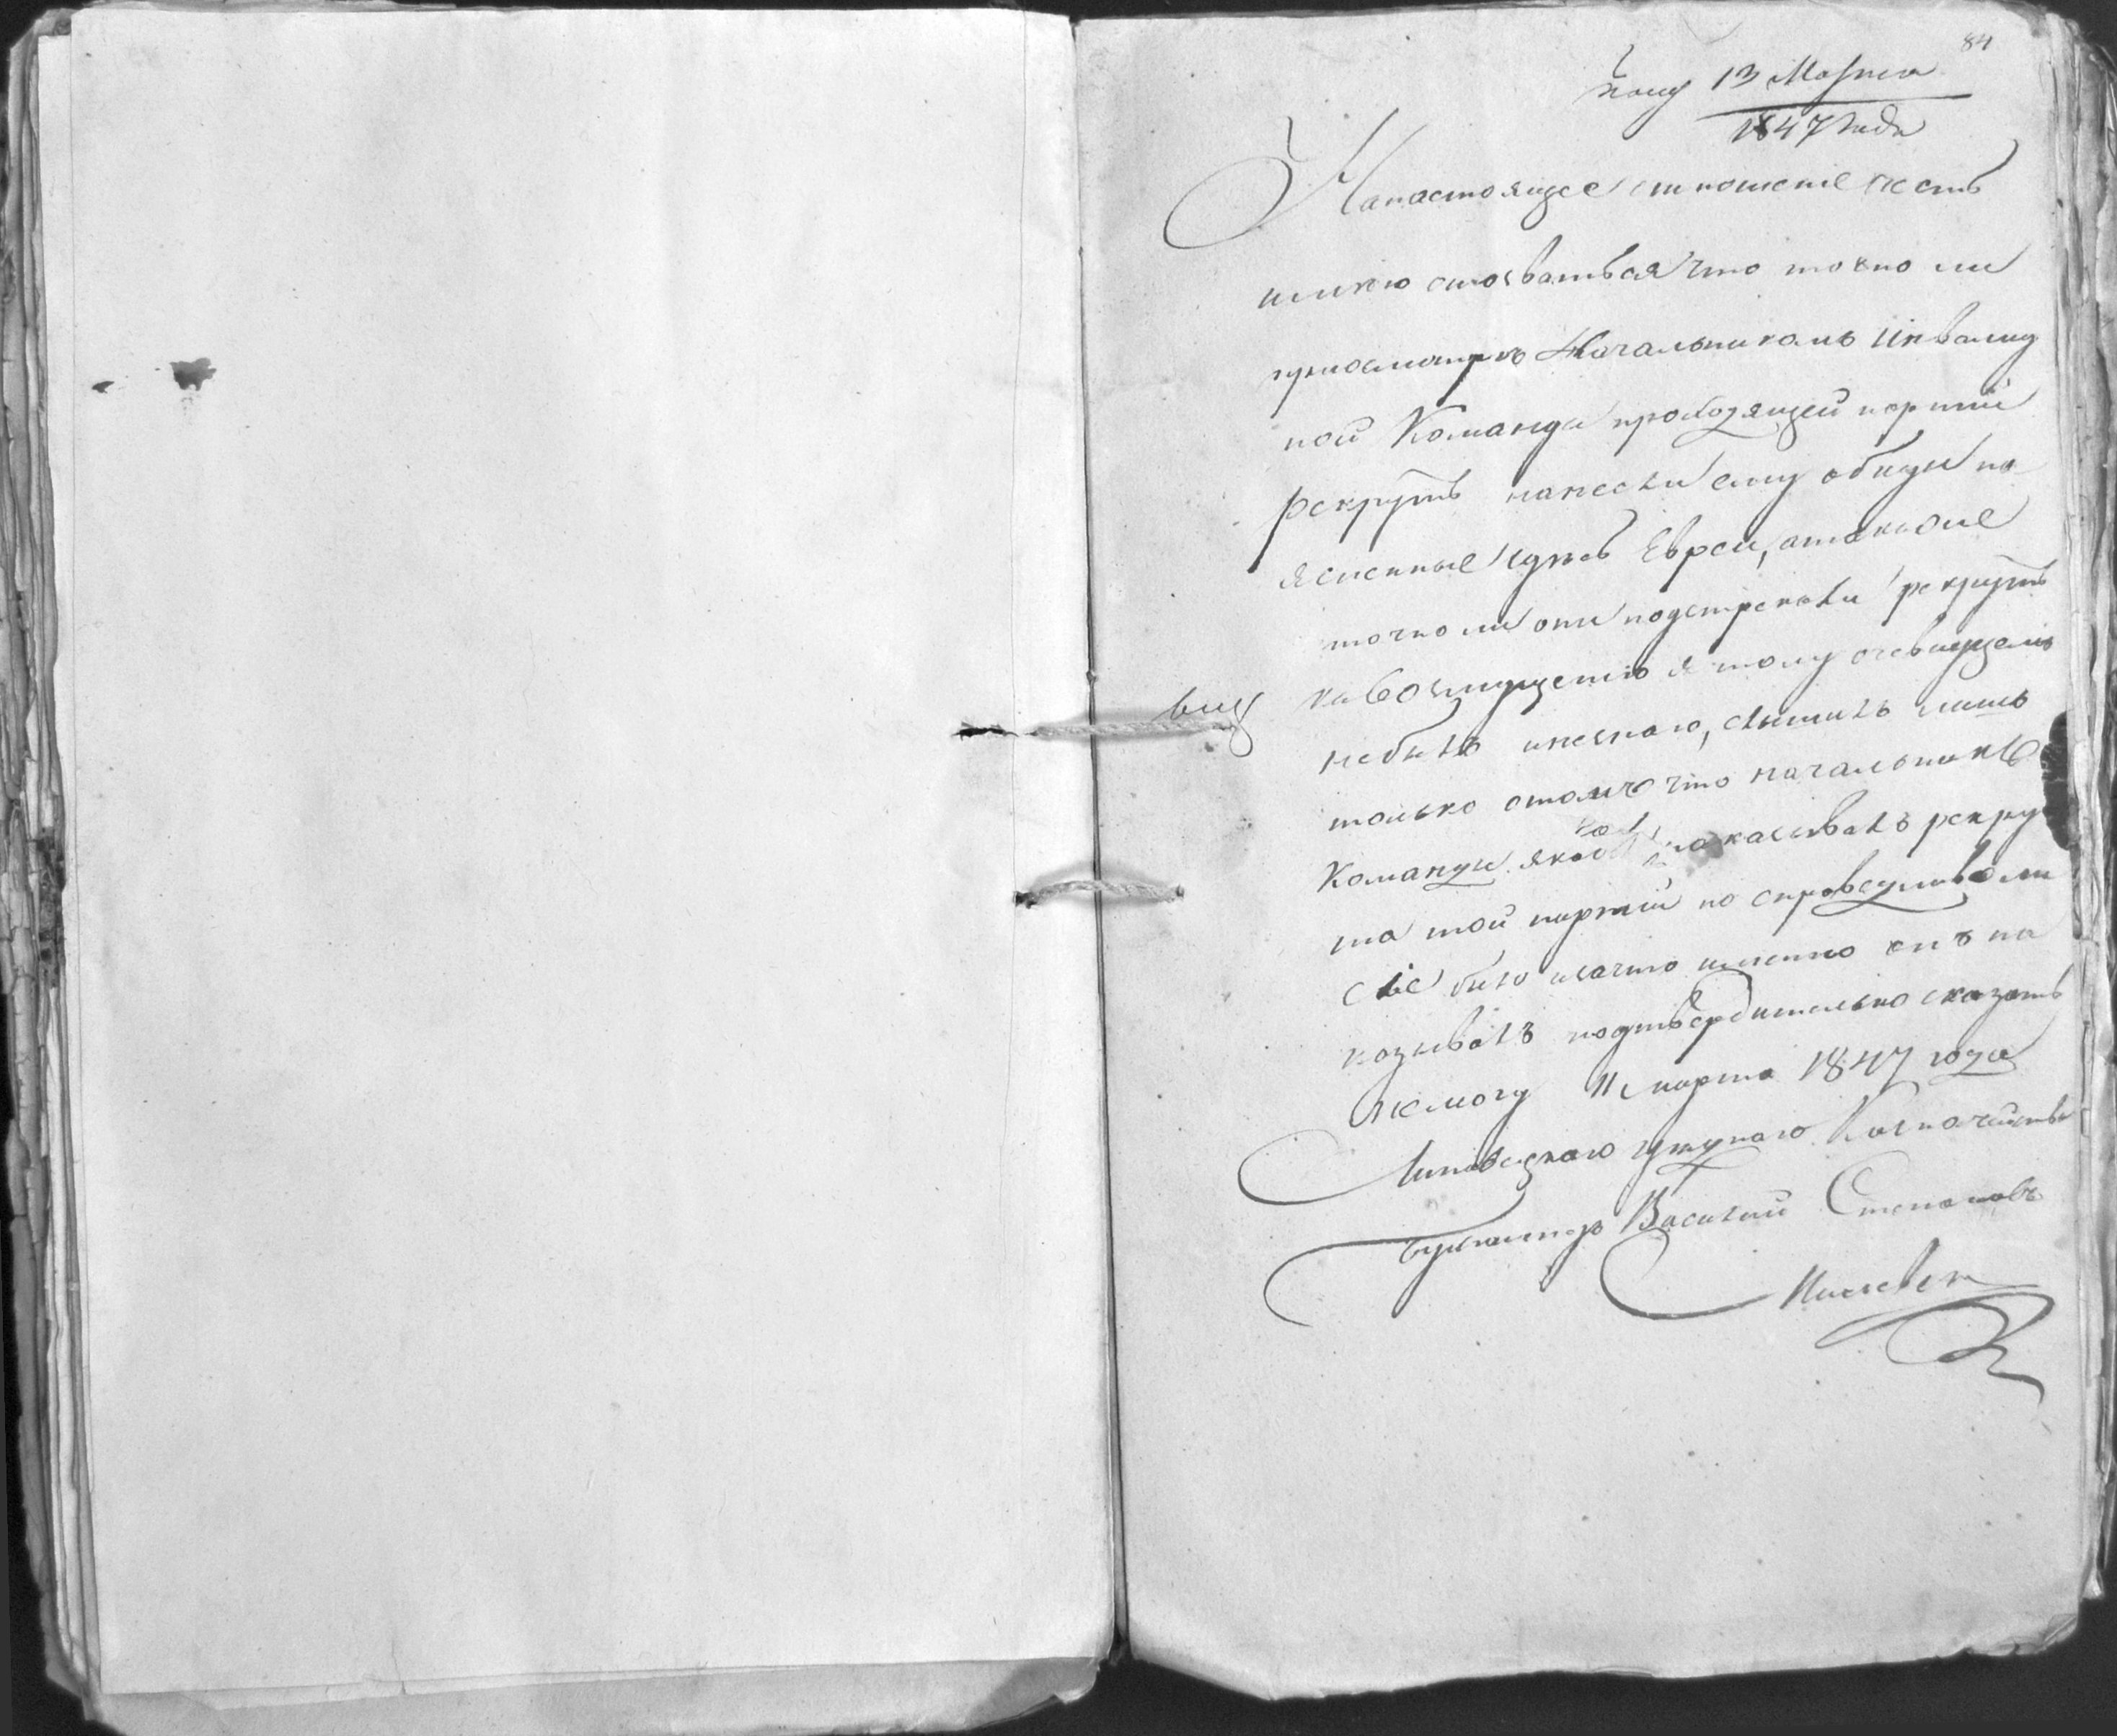 84
Полу 13 Марта
1847 года
На настоящее отношеніе честь
имею отозваться что точно ли
присмотръ Начальникомъ Инвалид
ной Команды проходящей партіи
рекрутъ нанесли ему обиды
Евреи, а также
точно ли они подстрекали рекрутъ
к возмущенію я тому очевидцемъ
небылъ инезнаю, слышилъ лишь
только отомъ что начальникъ
Команды якобы наказывалъ рекру
та той партіи но справедливо ли
сіе было изачто именно онъ на
казывалъ подтвердительно сказать
немогу 11 марта 1847 года
Липовецкаго уѣзднаго Казначейства
бухгалтеръ Василий Степановъ